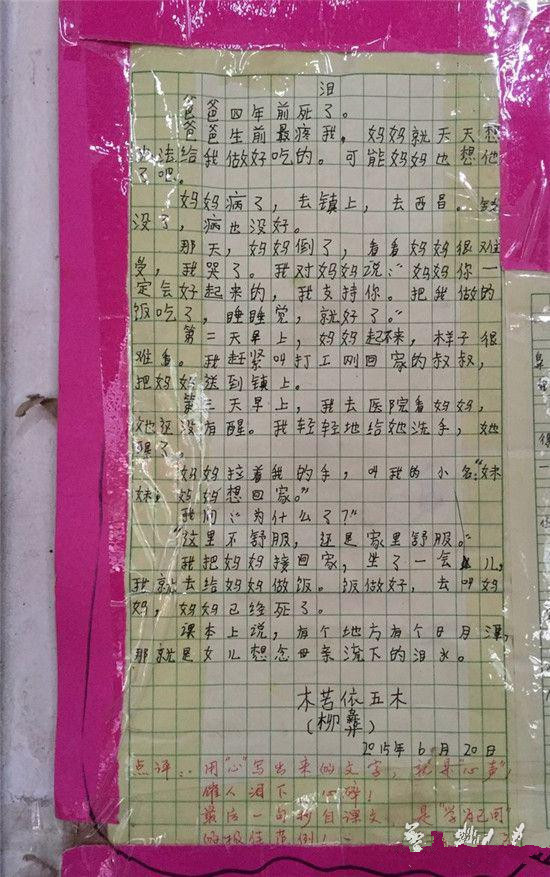 泪
爸爸四年前死了。
爸爸生前最疼我，妈妈就天天想
办法给我做好吃的。可能妈妈也想他
了吧。
妈妈病了，去镇上，去西昌。钱
没了，病也没好。
那天，妈妈倒了，看看妈妈很难
受，我哭了。我对妈妈说：“妈妈你一
定会好起来的，我支持你。把我做的
饭吃了，睡睡觉，就好了。”
第二天早上，妈妈起不来，样子很
难看。我赶紧叫打工刚回家的叔叔，
把妈妈送到镇上。
第三天早上，我去医院看妈妈，
她还没有醒。我轻轻地给她洗手，她
醒了。
妈妈拉着我的手，叫我的小名：“妹
妹，妈妈想回家。”
我问：“为什么了？”
“这里不舒服，还是家里舒服。”
我把妈妈接回家，坐了一会儿，
我就去给妈妈做饭。饭做好，去叫妈
妈，妈妈已经死了。
课本上说，有个地方有个日月潭，
那就是女儿想念母亲流下的泪水。
木苦依五木
（柳彝）
2015年6月20日
点评：用“心”写出来的文字，就是“心声”，
催人泪下，心碎！
最后一句抄自课文，是“学为己用”
的极佳范例！